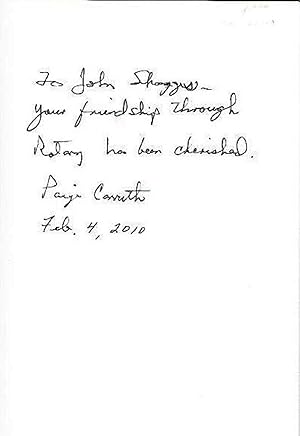 To John Skaggs—
your friendship through
Rotary has been cherished.
Paige Carruth
Feb. 4, 2010